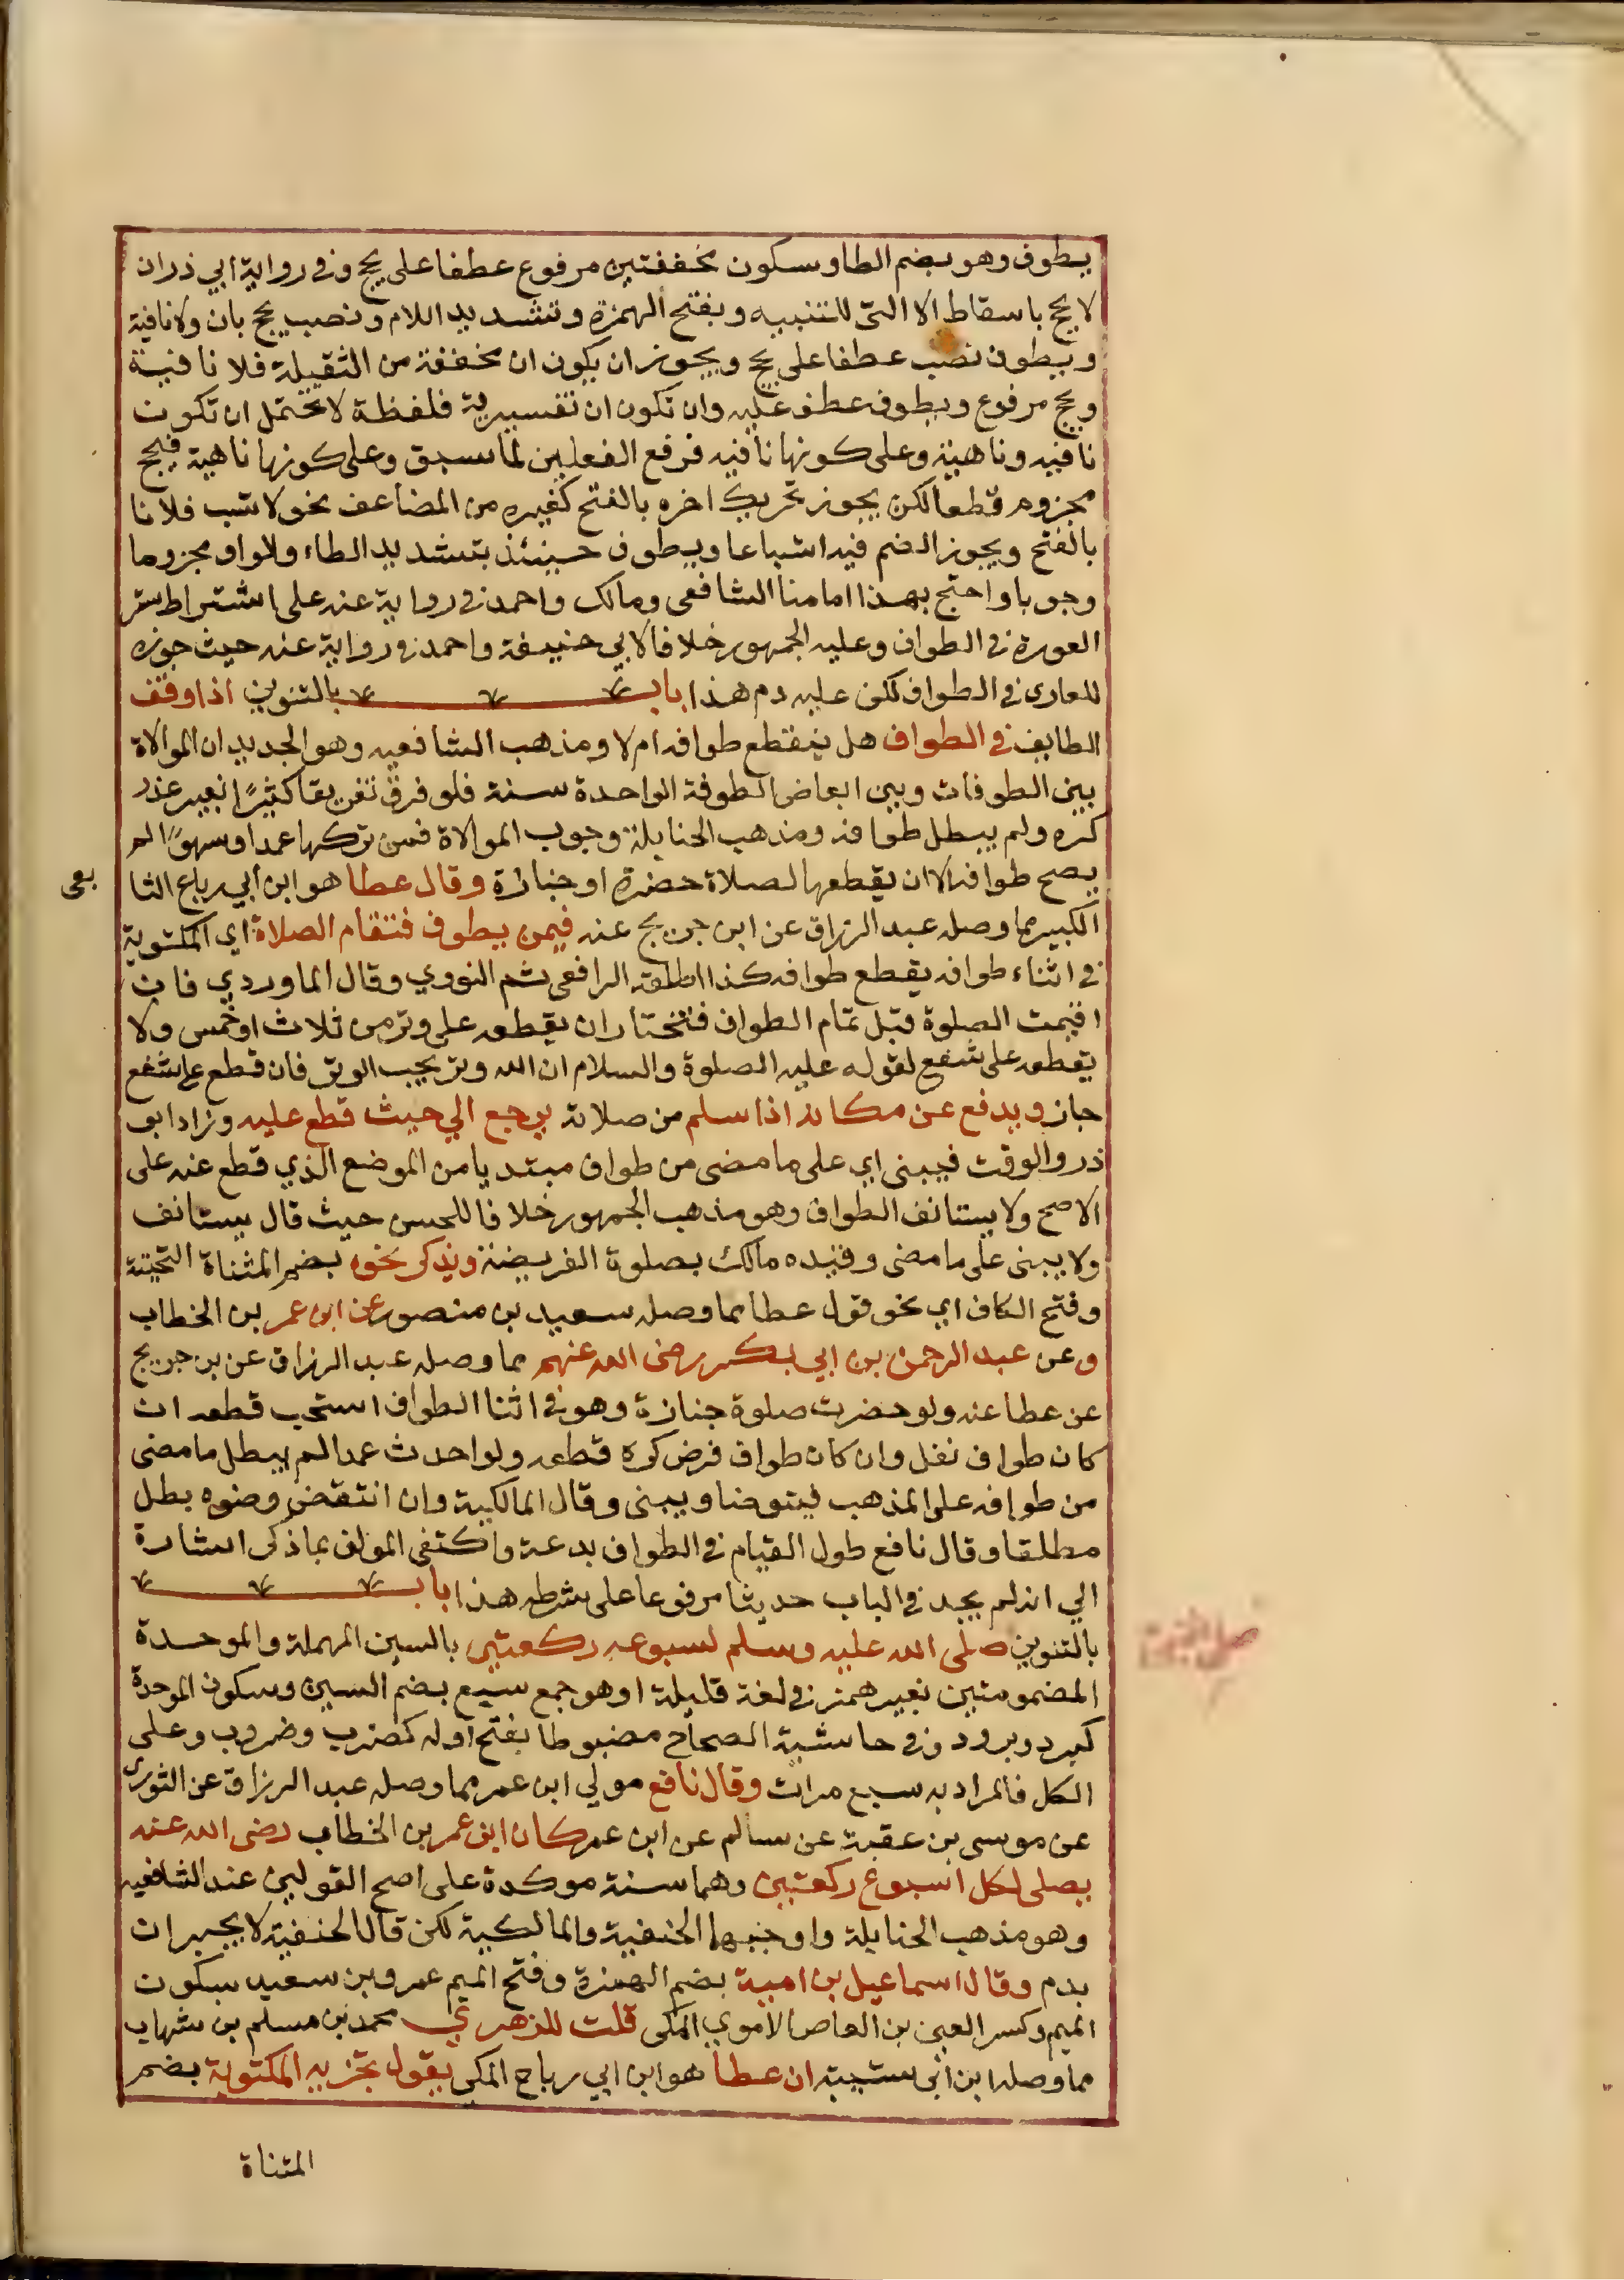 يطوف وهو بضم الطا وسكون مخففتين مرفوع عطفا على يحج وفي رواية ابي ذر ان
لا يحج باسقاط الا التي للتنبيه وبفتح الهمزة وتشديد اللام ونصب يحج بان ولا نافية
ويطوف نصب عطفا على يحج ويجوز ان يكون ان مخففة من الثقيلة فلا نافية
ويحج مرفوع ويطوف عطف عليه وان تكون ان تفسيرية فلفظة لا تحتمل ان تكون
نافيه وناهية وعلى كونها نافيه فرفع الفعلين لما سبق وعلى كونها ناهية فيحج
مجزوم قطعا لكن يجوز تحريك اخره بالفتح كغيره من المضاعف نحو لا تسب فلانا
بالفتح ويجوز الضم فيه اشباعا ويطوف حينئذ بتشديد الطاء والواو مجزوما
وجوبا واحتج بهذا امامنا الشافعي ومالك واحمد في رواية عنه على اشتراط ستر
العورة في الطواف وعليه الجمهور خلافا لابي حنيفة واحمد في رواية عنه حيث جوزه
للعاري في الطواف لكن عليه دم هذا باب بالتنوين اذا وقف
الطايف في الطواف هل ينقطع طوافه ام لا ومذهب الشافعيه وهو الجديد ان الموالاة
بين الطوفات وبين ابعاض الطوفة الواحدة سنة فلو فرق تفريقا كثيرًا بغير عذر
كره ولم يبطل طوافه ومذهب الحنابلة وجوب الموالاة فمن تركها عمدا او سهوًا لم
يصح طوافه الا ان يقطعها لصلاة حضرة او جنازة وقال عطا هو ابن ابي رباع التا
بعى
الكبير مما وصله عبد الرزاق عن ابن جريج عنه فيمن يطوف فتقام الصلاة اي المكتوبة
في اثناء طوافه يقطع طوافه كذا اطلقه الرافعي ثم النووي وقال الماوردي فان
اقيمت الصلوة قبل تمام الطواف فتختار ان يقطعه على وتر من ثلاث او خمس ولا
يقطعه على شفع لقوله عليه الصلوة والسلام ان الله وتر يحب الوتر فان قطع على شفع
جاز ويدفع عن مكانه اذا سلم من صلاته يرجع الي حيث قطع عليه وزاد ابو
ذر والوقت فيبنى اي على ما مضى من طوافه مبتديا من الموضع الذي قطع عنه على
الاصح ولا يستانف الطواف وهو مذهب الجمهور خلافا للحسن حيث قال يستانف
ولا يبنى على ما مضى وقيده مالك بصلوة الفريضة ويذكر نحوه بضم المثناة التحتية
وفتح الكاف اي نحو قول عطا مما وصله سعيد بن منصور عن ابن عمر بن الخطاب
وعن عبد الرحمن بن ابي بكر رضى الله عنهم مما وصله عبد الرزاق عن بن جريج
عن عطا عنه ولو حضرت صلوة جنازة وهو في اثنا الطواف استحب قطعه ان
كان طواف نفل وان كان طواف فرض كره قطعه ولو احدث عمدا لم يبطل ما مضى
من طوافه على المذهب فيتوضا ويبنى وقال المالكية وان انتقض وضوه بطل
مطلقا وقال نافع طول القيام في الطواف بدعة واكتفى المولف بما ذكر اشارة
الي انه لم يجد في الباب حديثا مرفوعا على شرطه هذا باب
بالتنوين صلى الله عليه وسلم لسبوعه ركعتين بالسين المهملة والموحدة
صلى النبي
المضمومتين بغير همز في لغة قليلة او هو جمع سبع بضم السين وسكون الموحدة
كبرد وبرود وفي حاشية الصحاح مضبوطا بفتح اوله كضرب وضروب وعلى
الكل فالمراد به سبع مرات وقال نافع مولي ابن عمر مما وصله عبد الرزاق عن الثوري
عن موسى بن عقبة عن سالم عن ابن عمر كان ابن عمر بن الخطاب رضى الله عنه
يصلى لكل اسبوع ركعتين وهما سنة موكدة على اصح القولين عند الشافعيه
وهو مذهب الحنابلة واوجبها الحنفية والمالكية لكن قال الحنفية لا يجبران
بدم وقال اسماعيل بن امية بضم الهمزة وفتح الميم عمرو بن سعيد بسكون
الميم وكسر العين بن العاص الاموي المكي قلت للزهري محمد بن مسلم بن شهاب
مما وصله ابن ابي شيبة ان عطا هو ابن ابي رباح المكي يقول تجزيه المكتوبة بضم
المثناة